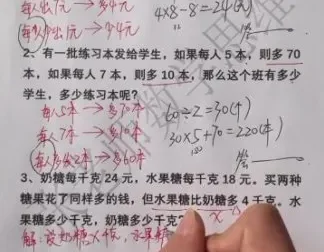 每人出1元 → 多4元
4×8-8=24(元)
每人少出1元 → 少4元
2、有一批练习本发给学生，如果每人5本，则多70
本，如果每人7本，则多10本，那么这个班有多少
学生，多少练习本呢？
每人5本 → 多70本
60÷2=30(个)
每人7本 → 多10本
30×5+70=220(本)
每人多发2本 → 多60本
3、奶糖每千克24元，水果糖每千克18元。买两种
糖果花了同样多的钱，但水果糖比奶糖多4千克。水
果糖多少千克，奶糖多少千克？
x
解：设奶糖x千克，水果糖